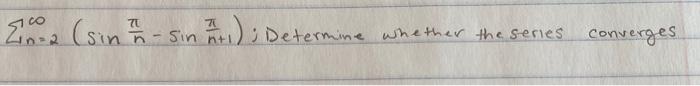 ∑_{n=2}^{∞} (sin π/n - sin π/n+1); Determine whether the series converges